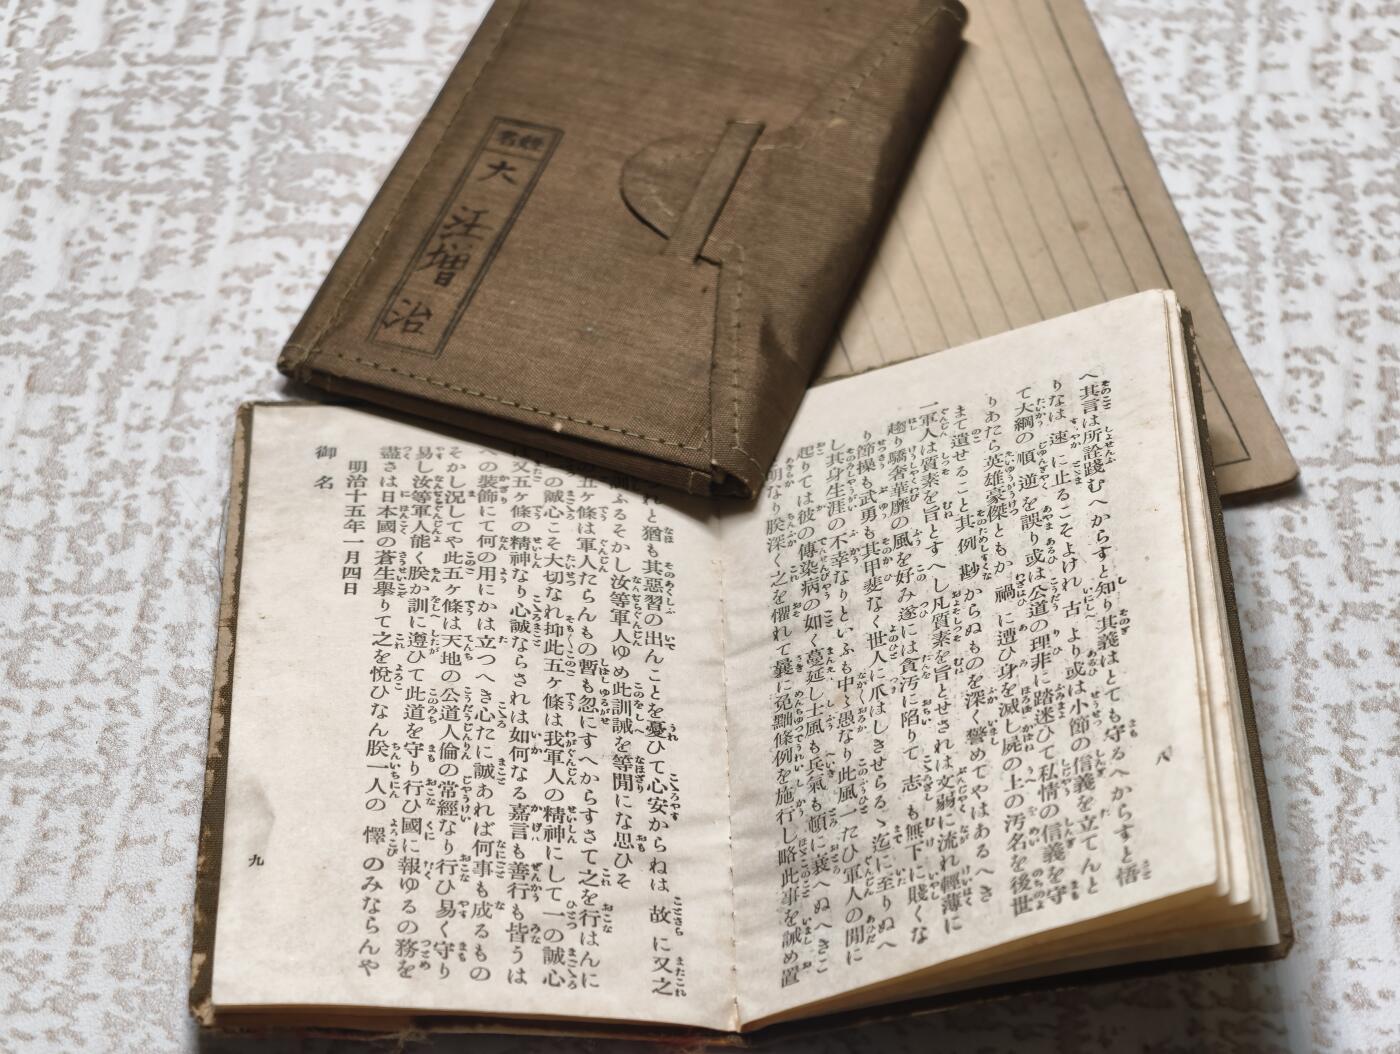 姓名
大汪増治
へ其言は所詮踐むへからすと知り其義はとても守るへからすと悟
りなは速に止るこそよけれ古より或は小節の信義を立てんと
て大綱の順逆を誤り或は公道の理非に踏迷ひて私情の信義を守
りあたら英雄豪傑ともか禍に遭ひ身を滅し屍の上の汚名を後世
まて遺せること其例尠からぬものを深く警めてやはあるへき
一軍人は質素を旨とすへし凡質素を旨とせされは文弱に流れ輕薄に
趨り驕奢華靡の風を好み遂には貪汚に陷りて志も無下に賤くな
り節操も武勇も其甲斐なく世人に爪はしきせらるゝ迄に至りぬへ
し其身生涯の不幸なりといふも中〻愚なり此風一たひ軍人の間に
起りては彼の傳染病の如く蔓延し士風も兵氣も頓に衰へぬへきこ
明なり朕深く之を懼れて曩に免黜條例を施行し略此事を誡め置
八
れと猶も其惡習の出んことを憂ひて心安からねは故に又之
訓ふるそかし汝等軍人ゆめ此訓誡を等閒にな思ひそ
五ヶ條は軍人たらんもの暫も忽にすへからすさて之を行はんに
の誠心こそ大切なれ抑此五ヶ條は我軍人の精神にして一の誠心
又五ヶ條の精神なり心誠ならされは如何なる嘉言も善行も皆うは
への裝飾にて何の用にかは立つへき心たに誠あれは何事も成るもの
そかし況してや此五ヶ條は天地の公道人倫の常經なり行ひ易く守り
易し汝等軍人能く朕か訓に遵ひて此道を守り行ひ國に報ゆるの務を
盡さは日本國の蒼生擧りて之を悅ひなん朕一人の懌のみならんや
明治十五年一月四日
御名
九